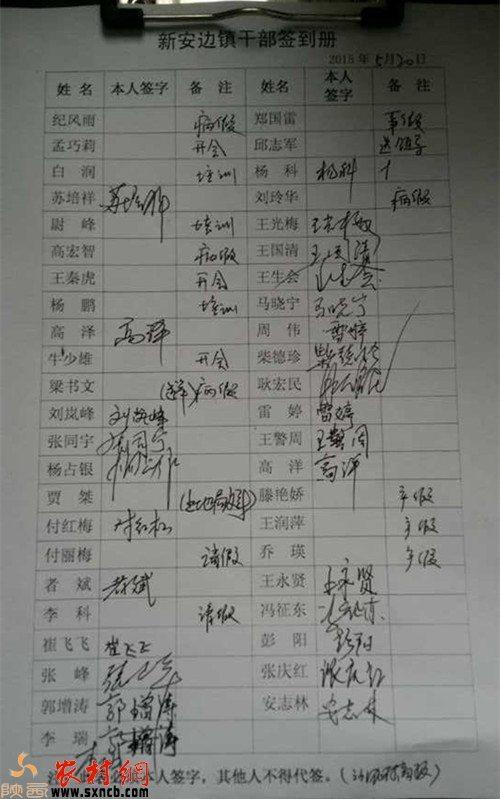 新安边镇干部签到册
2015年5月20日
姓名 本人签字 备注 姓名 本人签字 备注
纪风雨 病假 郑国雷 事假
孟巧莉 开会 邱志军 送领导
白润 培训 杨科 杨科
苏培祥 苏培祥 刘玲华 病假
尉峰 培训 王光梅
高宏智 病假 王国清 王国清
王秦虎 开会 王生会
杨鹏 培训 马晓宁 马晓宁
高泽 高泽 周伟 雷婷
牛少雄 开会 柴德珍 柴德珍
梁书文 病假 耿宏民
刘岚峰 刘岚峰 雷婷 雷婷
张同宇 张同宇 王警周 王警周
杨占银 高洋 高洋
贾桀 滕艳娇 产假
付红梅 付红梅 王润萍 产假
付丽梅 请假 乔瑛 产假
者斌 者斌 王永贤 王永贤
李科 请假 冯征东 冯征东
崔飞飞 崔飞飞 彭阳 彭阳
张峰 张庆红 张庆红
郭增涛 郭增涛 安志林 安志林
李瑞 郭增涛
本人签字，其他人不得代签。
陕西 农村网
www.sxncb.com